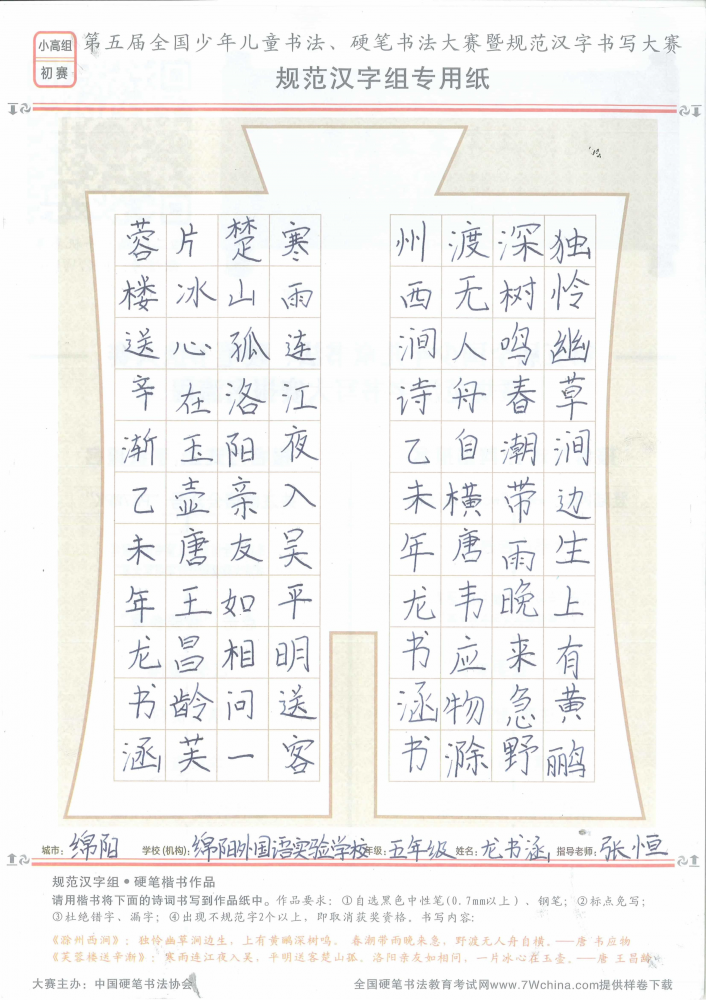 小高组
初赛
第五届全国少年儿童书法、硬笔书法大赛暨规范汉字书写大赛
规范汉字组专用纸
独怜幽草涧边生上有黄鹂
深树鸣春潮带雨晚来急野
渡无人舟自横唐韦应物滁
州西涧诗乙未年龙书涵书
寒雨连江夜入吴平明送客
楚山孤洛阳亲友如相问一
片冰心在玉壶唐王昌龄芙
蓉楼送辛渐乙未年龙书涵
城市：绵阳 学校(机构)：绵阳外国语实验学校 年级：五年级 姓名：龙书涵 指导老师：张恒
规范汉字组•硬笔楷书作品
请用楷书将下面的诗词书写到作品纸中。作品要求：①自选黑色中性笔(0.7mm以上)、钢笔；②标点免写；
③杜绝错字、漏字；④出现不规范字2个以上，即取消获奖资格，书写内容：
《滁州西涧》：独怜幽草涧边生，上有黄鹂深树鸣。春潮带雨晚来急，野渡无人舟自横。——唐 韦应物
《芙蓉楼送辛渐》：寒雨连江夜入吴，平明送客楚山孤。洛阳亲友如相问，一片冰心在玉壶。——唐 王昌龄
大赛主办：中国硬笔书法协会 全国硬笔书法教育考试网www.7Wchina.com提供样卷下载